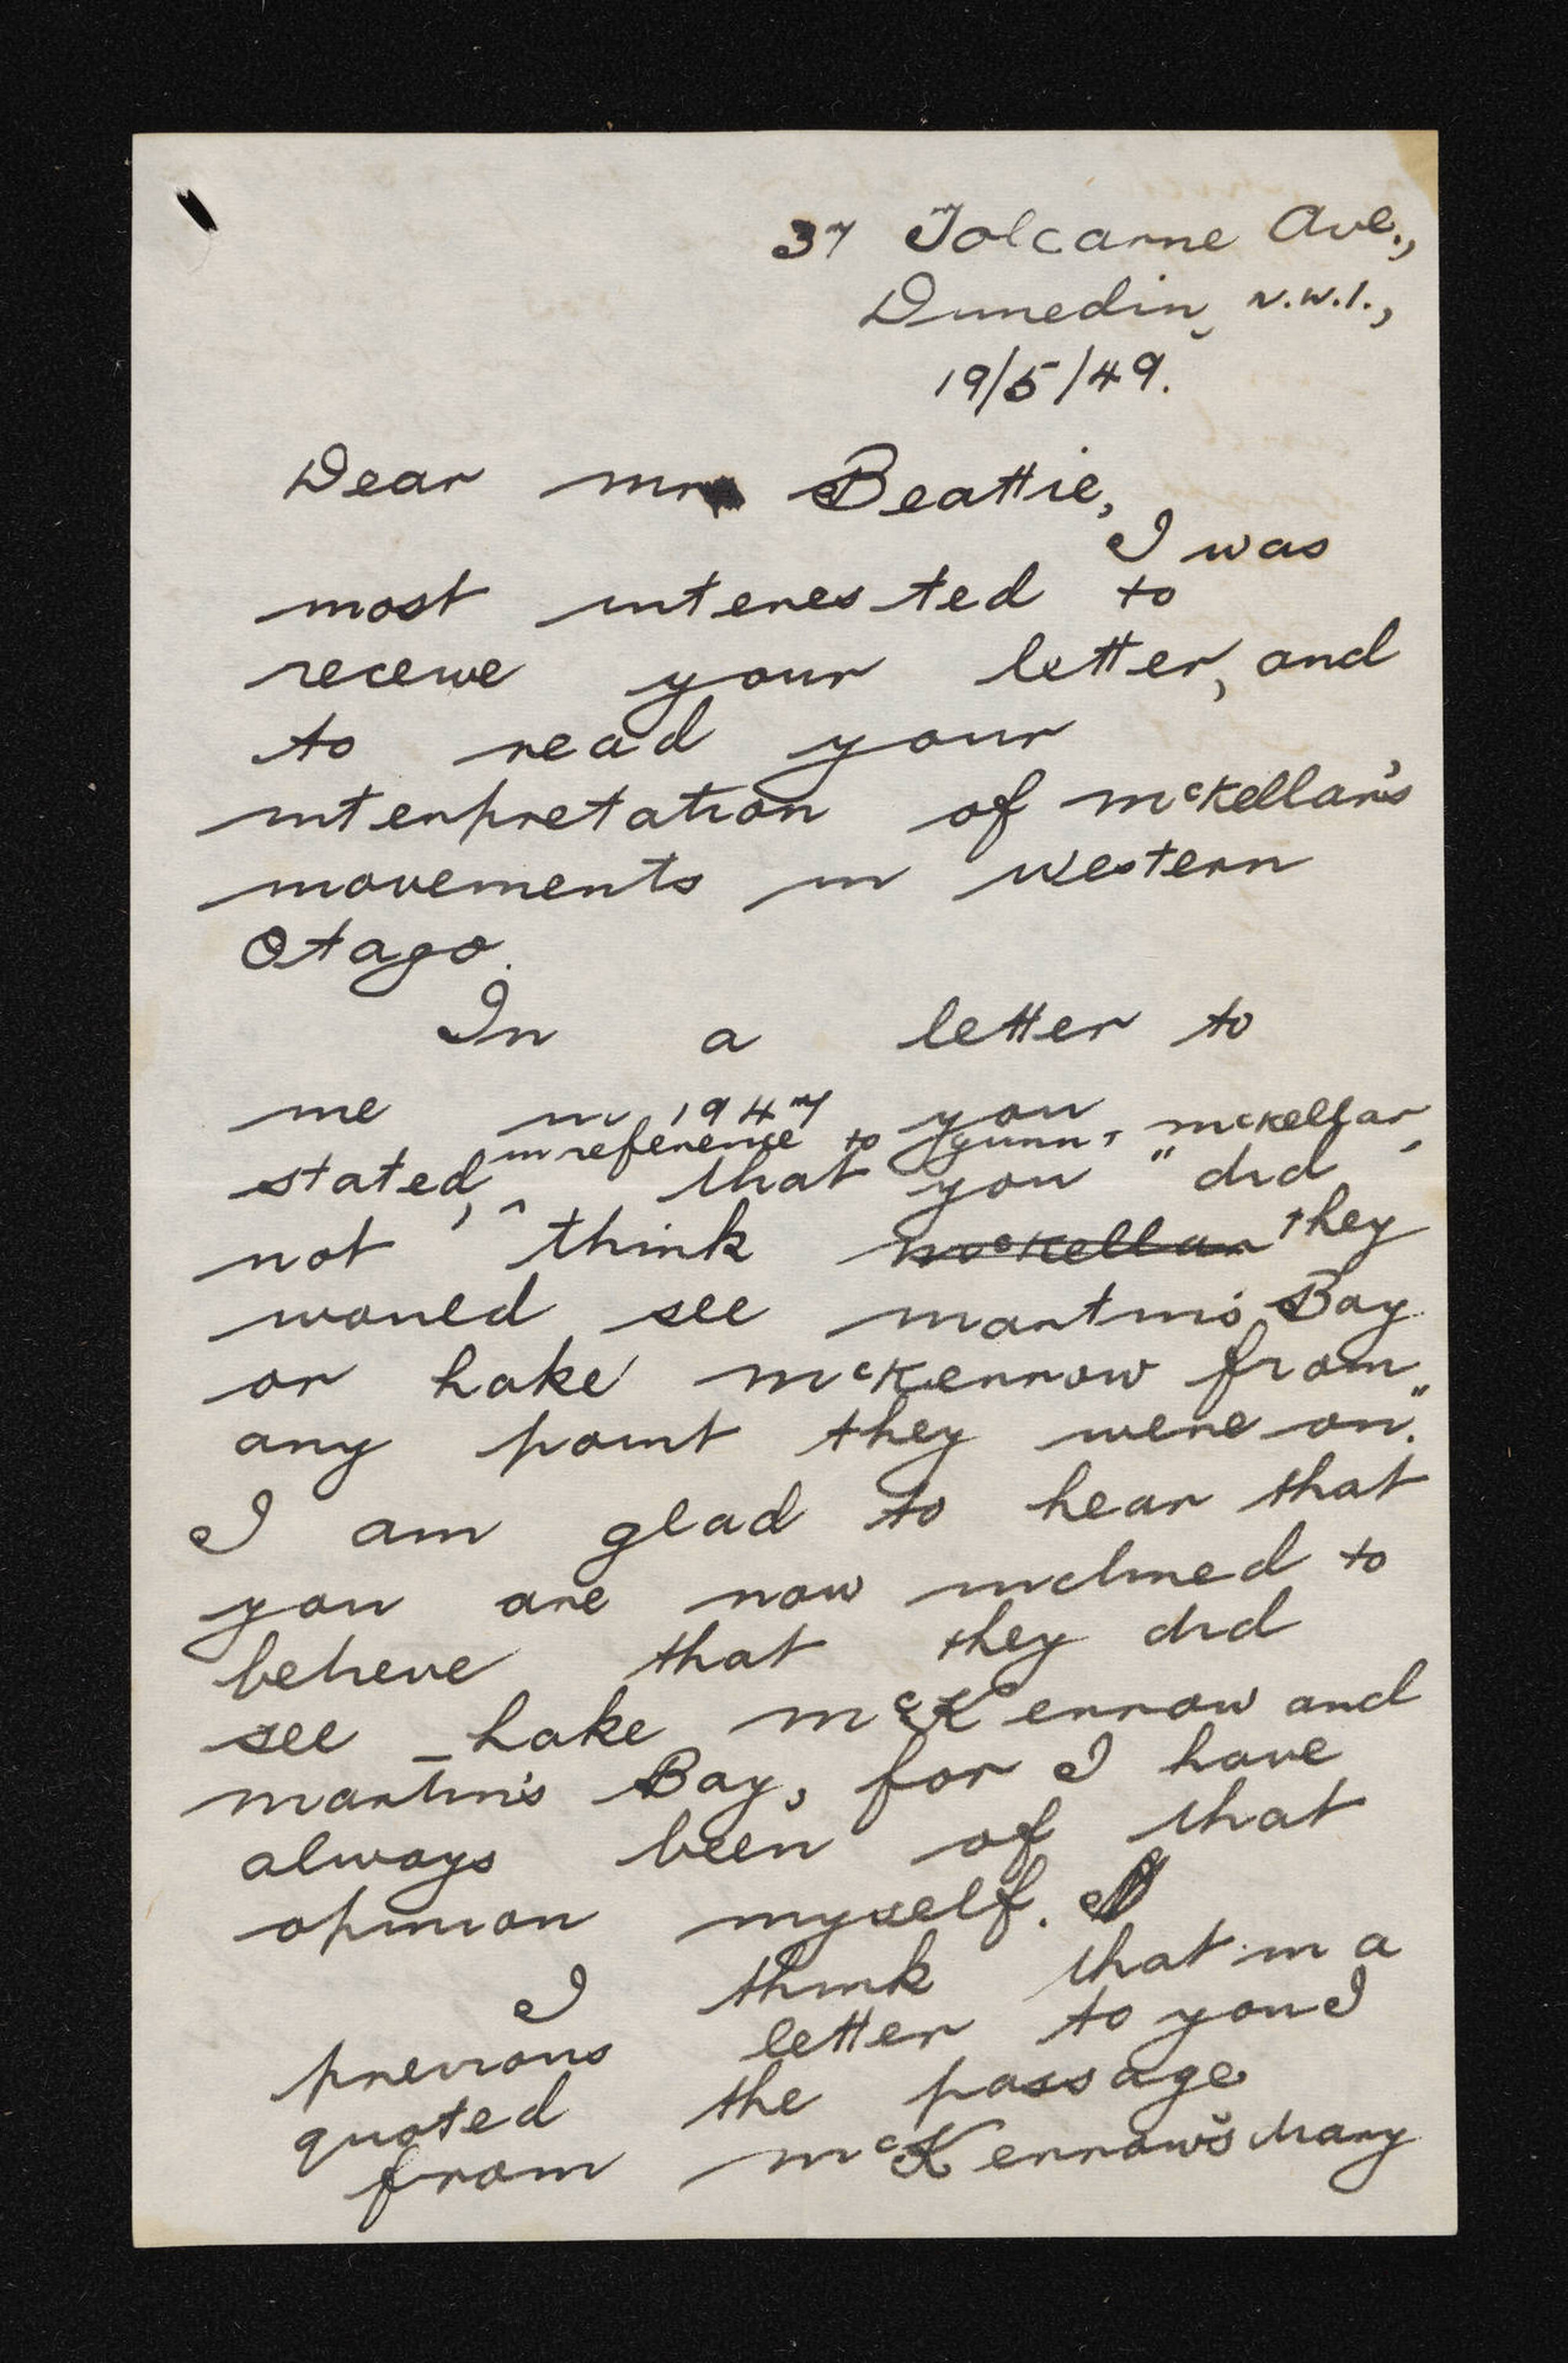 37 Tolcarne Ave.,
Dunedin, N.W.1.,
19/5/49.
Dear Mr Beattie,
I was
most interested to
receive your letter, and
to read your
interpretation of McKellar's
movements in Western
Otago.
In a letter to
me in 1947 you
in reference to Gunn & McKellar,
stated, ^ that you "did
not think McKellar they
would see Martin's Bay
or Lake McKerrow from
any point they were on."
I am glad to hear that
you are now inclined to
believe that they did
see Lake McKerrow and
Martin's Bay, for I have
always been of that
opinion myself.
I think that in a
previous letter to you I
quoted the passage
from McKerrow's diary